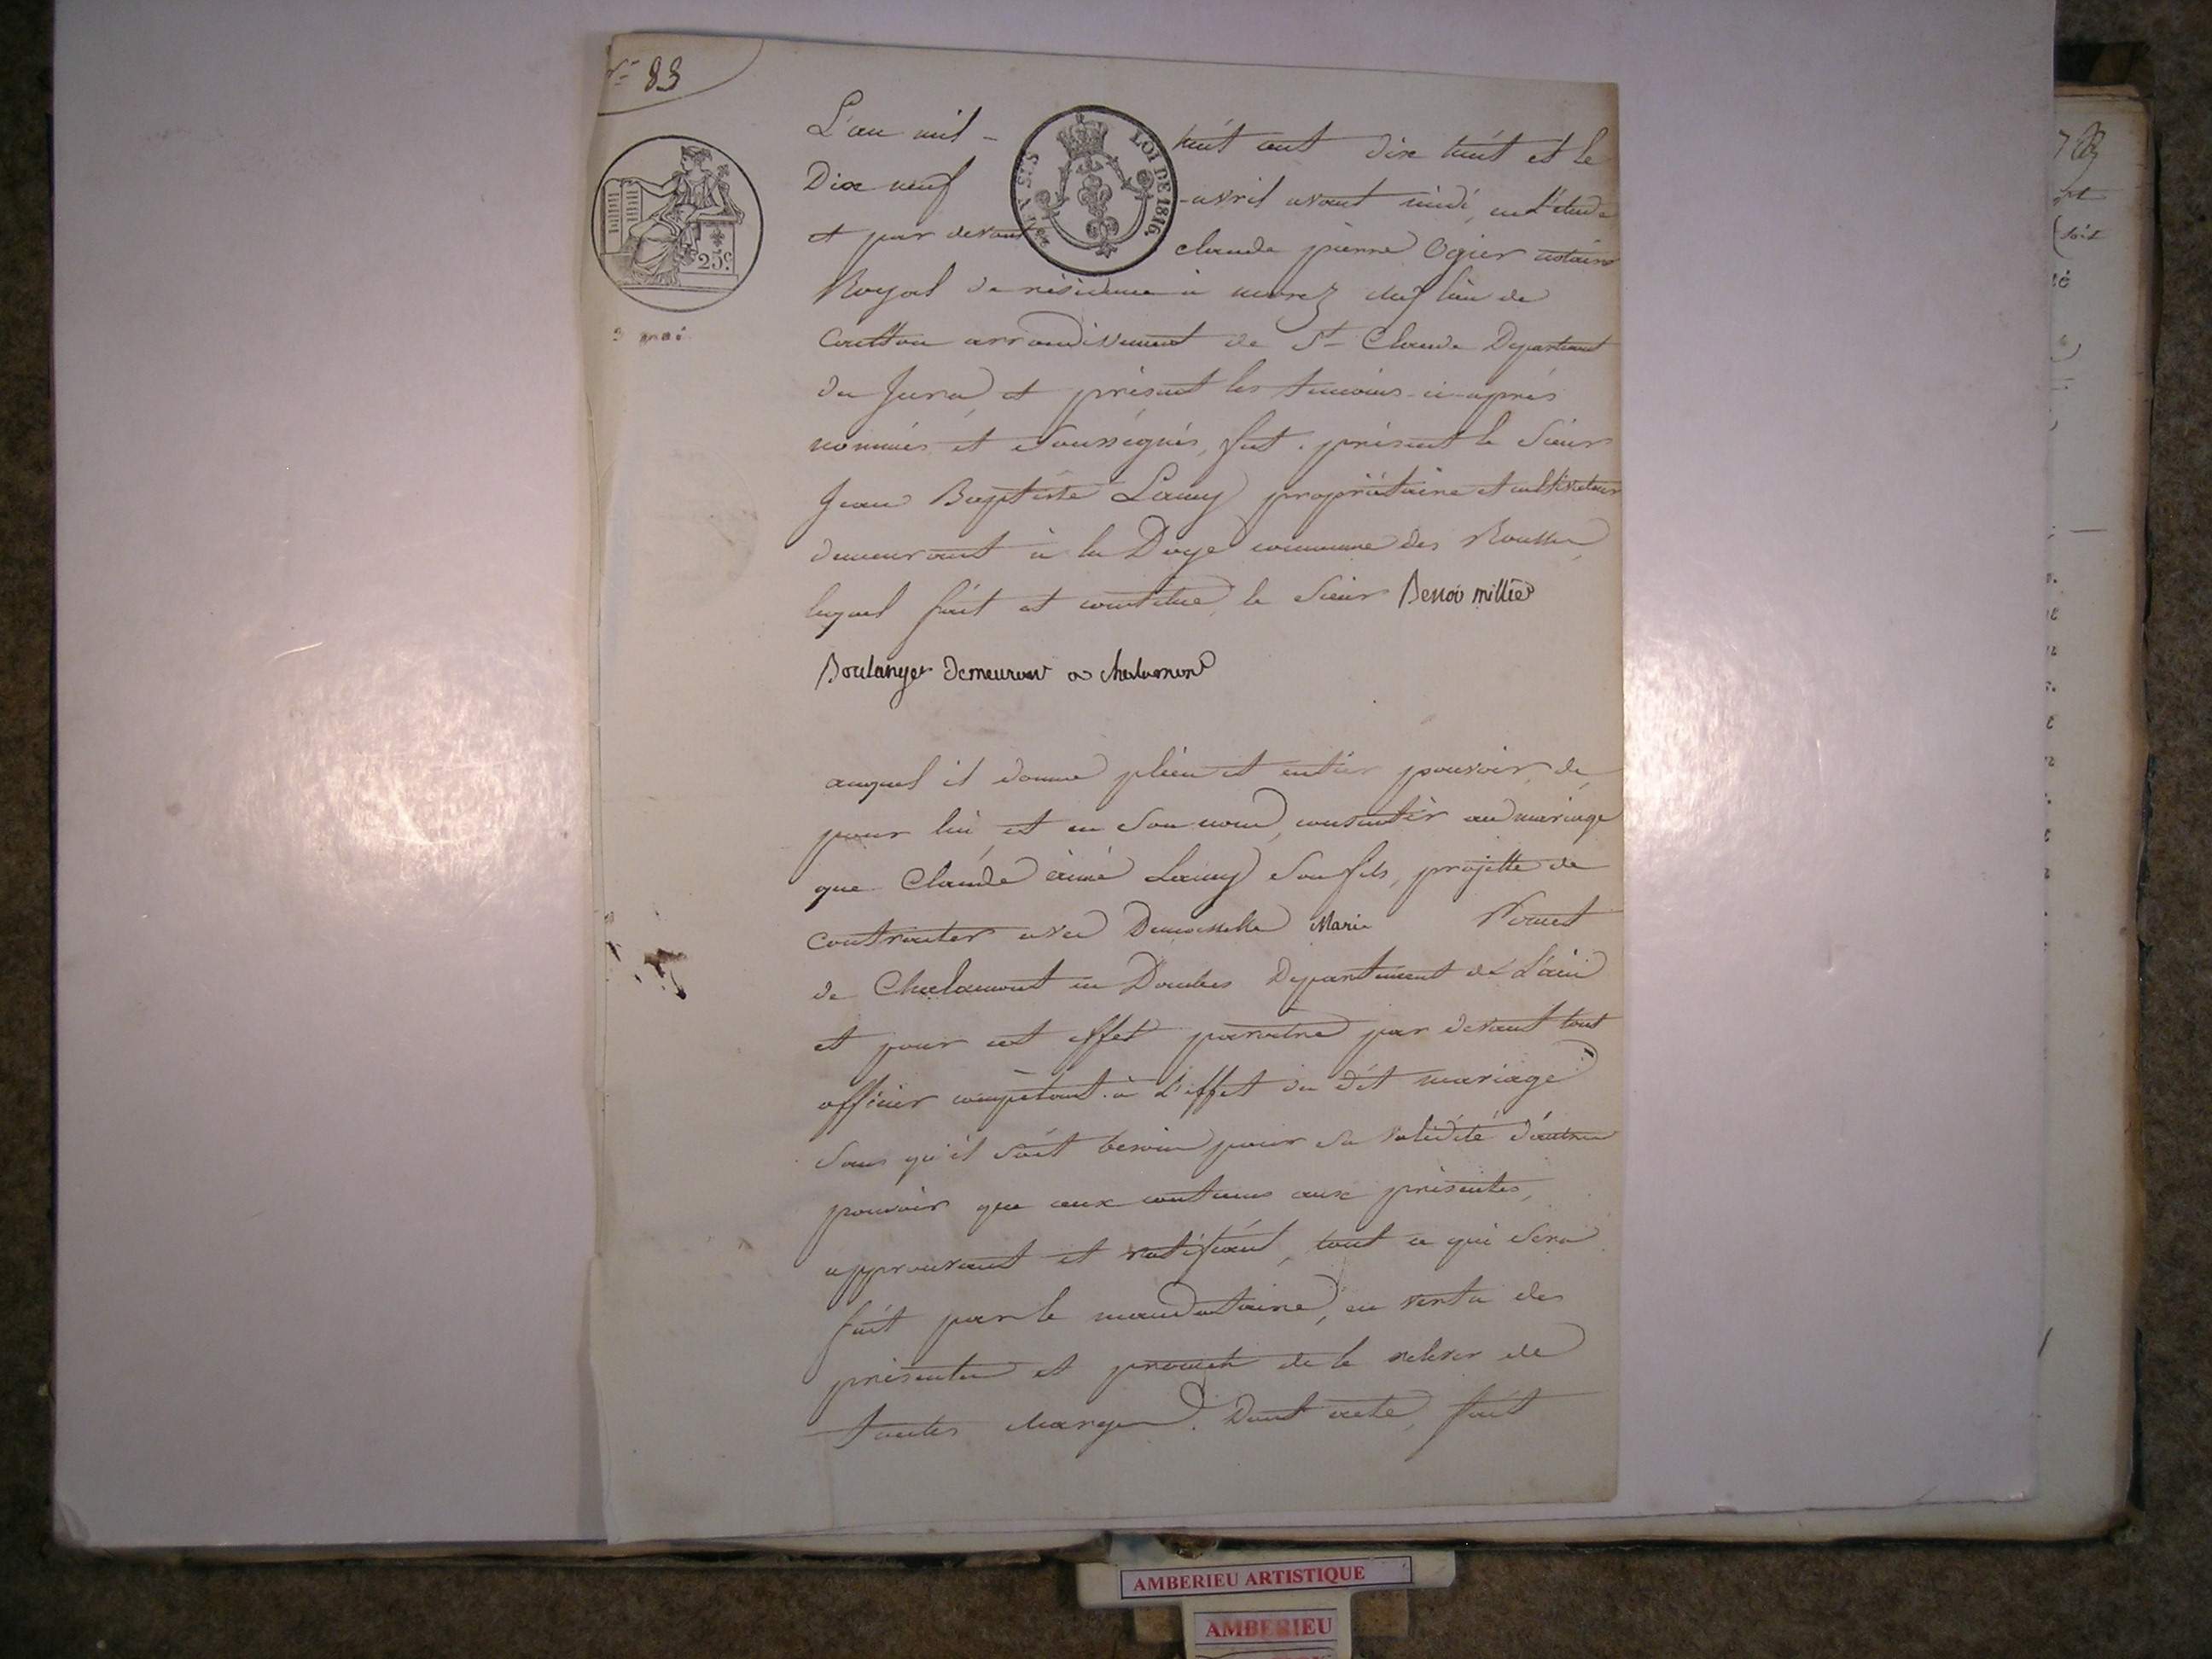 N° 83
L'an mil - huit cent dix huit et le
Dix neuf avril avant midi, en l'étude
et par devant claude pierre Ogier notaire
Royal de résidence à morez chef lieu de
Canton arrondissement de St Claude Département
du Jura, et présent les témoins ci-après
nommés et soussignés, fut présent le Sieur
Jean Baptiste Lamy propriétaire et cultivateur
demeurant à la Doye commune des Rousses,
lequel fait et constitue, le Sieur Benoi millie
Boulanger demeurant a chalamont
auquel il donne plein et entier pouvoir, de
pour lui, et en son nom, consentir au mariage
que Claude aimé Lamy son fils, projette de
contracter avec Demoiselle Marie
de Chalamont en Dombes Département de L'ain
et pour cet effet paroitre par devant tout
officier compétant à l'effet du dit mariage
sans qu'il soit besoin pour sa validité d'autres
pouvoir que ceux contenus aux présentes,
approuvant et ratifiant, tout ce qui sera
fait par le mandataire, en vertu des
présentes et promet de le relever de
toutes charges. Dont acte, fait
LOI DE 1816.
25c.
3 mai
AMBERIEU ARTISTIQUE
AMBERIEU